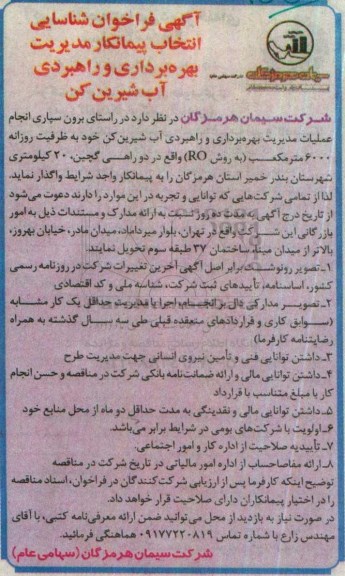 آگهی فراخوان شناسایی
انتخاب پیمانکار مدیریت
بهره‌برداری و راهبردی
آب شیرین کن
شرکت سیمان هرمزگان در نظر دارد در راستای برون سپاری انجام
عملیات مدیریت بهره‌برداری و راهبردی آب شیرین‌کن خود به ظرفیت روزانه
۶۰۰۰ مترمکعب (به روش RO) واقع در دو راهی گچین، ۲۰ کیلومتری
شهرستان بندر خمیر استان هرمزگان را به پیمانکار واجد شرایط واگذار نماید.
لذا از تمامی شرکت‌هایی که توانایی و تجربه در این موارد را دارند دعوت می‌شود
از تاریخ درج آگهی به مدت ده روز نسبت به ارائه مدارک و مستندات ذیل به امور
بازرگانی این شرکت واقع در تهران، بلوار میرداماد، میدان مادر، خیابان بهروز،
بالاتر از میدان مینا، ساختمان ۳۷ طبقه سوم تحویل نمایند.
۱ـ تصویر رونوشت برابر اصل آگهی آخرین تغییرات شرکت در روزنامه رسمی
کشور، اساسنامه، تأییدهای ثبت شرکت، شناسه ملی و کد اقتصادی
۲ـ تصویر مدارکی دال بر انجام، اجرا یا مدیریت حداقل یک کار مشابه
(سوابق کاری و قراردادهای منعقده قبلی طی سه سال گذشته به همراه
رضایتنامه کارفرما)
۳ـ داشتن توانایی فنی و تأمین نیروی انسانی جهت مدیریت طرح
۴ـ داشتن توانایی مالی و ارائه ضمانت‌نامه بانکی شرکت در مناقصه و حسن انجام
کار با مبلغ متناسب با قرارداد
۵ـ داشتن توانایی مالی و نقدینگی به مدت حداقل دو ماه از محل منابع خود
۶ـ اولویت با شرکت‌های بومی در شرایط برابر می‌باشد.
۷ـ تأییدیه صلاحیت از اداره کار و امور اجتماعی.
۸ـ ارائه مفاصاحساب از اداره امور مالیاتی در تاریخ شرکت در مناقصه
توضیح اینکه کارفرما پس از ارزیابی شرکت‌کنندگان در فراخوان، اسناد مناقصه
را در اختیار پیمانکاران دارای صلاحیت قرار خواهد داد.
در صورت نیاز به بازدید از محل می‌توانید ضمن ارائه معرفی‌نامه کتبی، با آقای
مهندس زارع با شماره تماس ۰۹۱۷۷۲۲۰۸۱۹ هماهنگی فرمائید.
شرکت سیمان هرمزگان (سهامی عام)